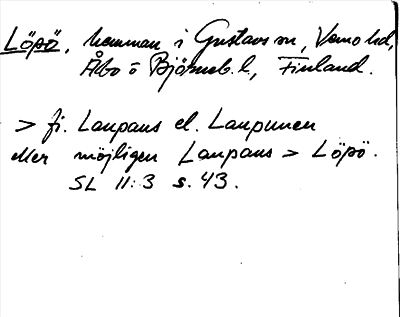 Löpö, hemman i Gustavs sn, Vemo hd,
Åbo o Björneb. l, Finland.
> fi. Laupaus el. Laupunen
eller möjligen Laupaus > Löpö.
SL 11:3 s. 43.